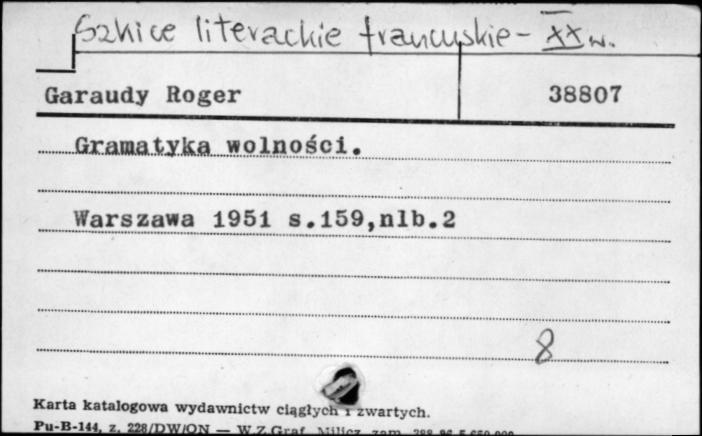 Szkice literackie francuskie - XX w.
Garaudy Roger 38807
Gramatyka wolności.
Warszawa 1951 s.159,nlb.2
8
Karta katalogowa wydawnictw ciągłych i zwartych.
Pu-B-144, z. 228/DW/ON — W.Z.Graf. Milicz zam.